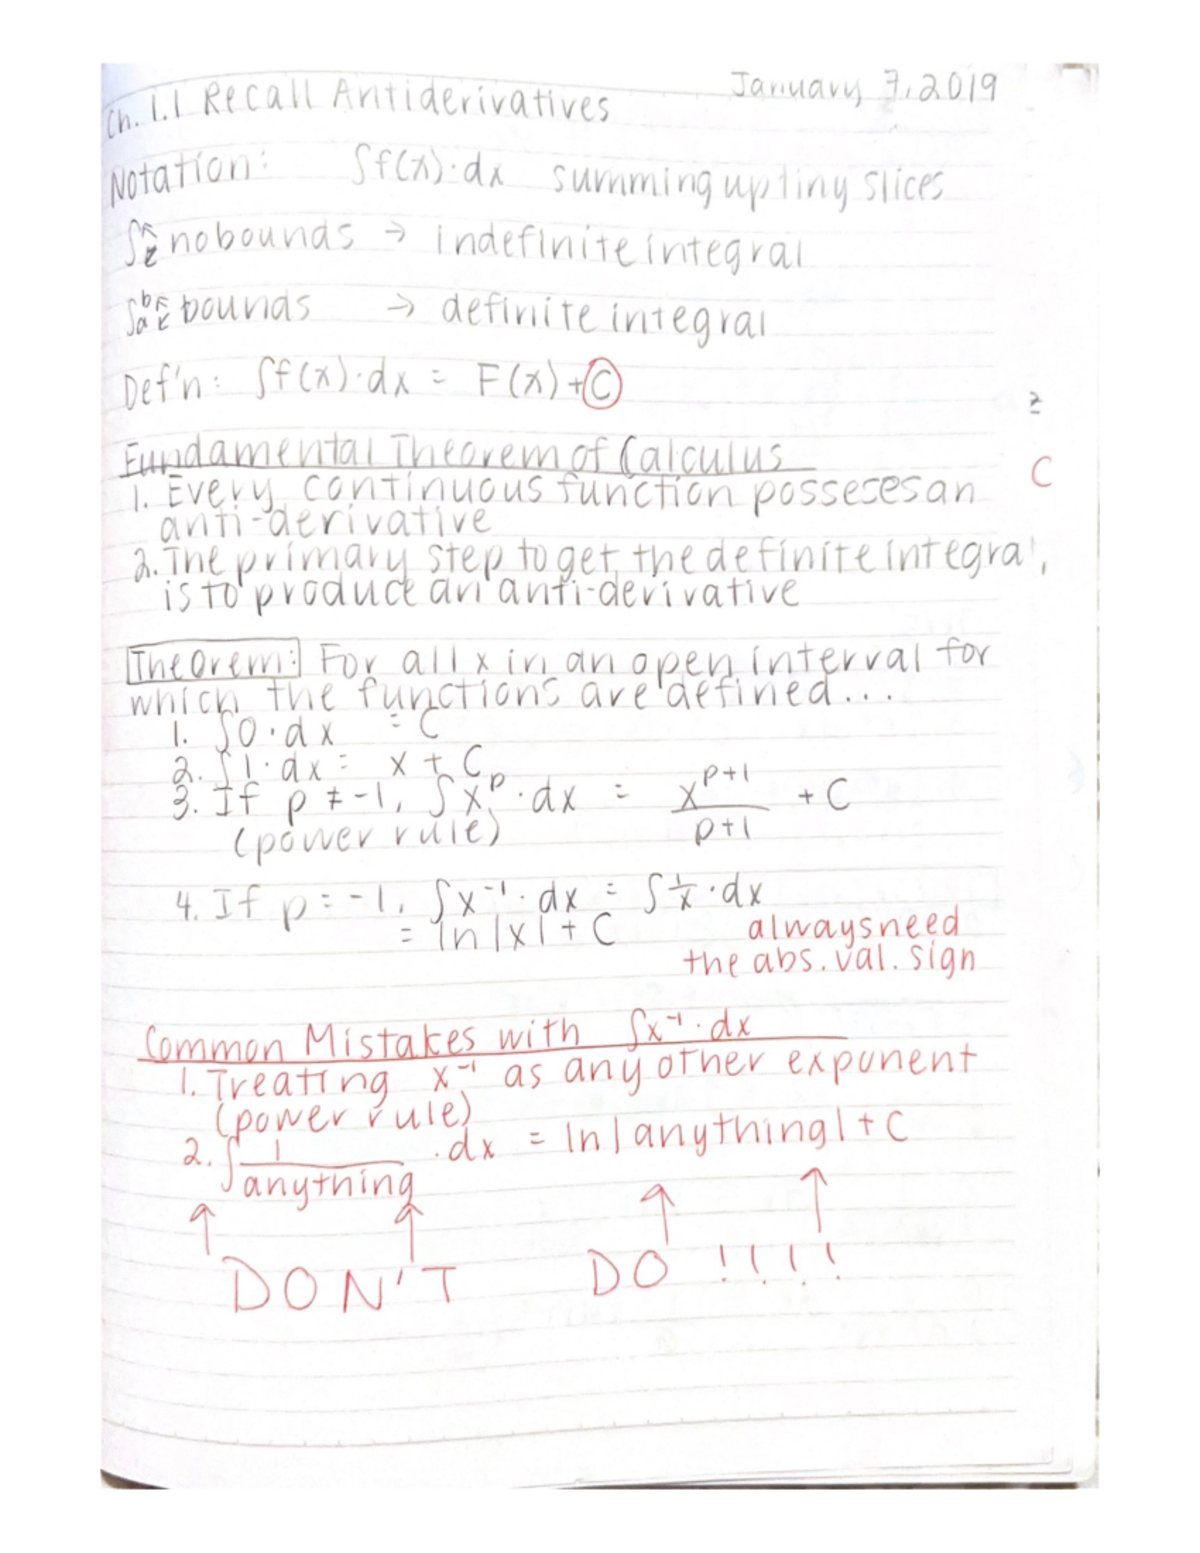 January 7, 2019
Ch. 1.1 Recall Antiderivatives
Notation: ∫f(x)·dx summing up tiny slices
∫ no bounds → indefinite integral
∫ᵇₐ bounds → definite integral
Def'n: ∫f(x)·dx = F(x) + C
Fundamental Theorem of Calculus
C
1. Every continuous function posseses an
anti-derivative
2. The primary step to get the definite integral,
is to produce an anti-derivative
Theorem: For all x in an open interval for
which the functions are defined...
1. ∫0·dx = C
2. ∫1·dx = x + C
3. If p ≠ -1, ∫xᵖ·dx = x^(p+1)/(p+1) + C
(power rule)
4. If p = -1, ∫x⁻¹·dx = ∫1/x·dx
= ln|x| + C always need
the abs. val. sign
Common Mistakes with ∫x⁻¹·dx
1. Treating x⁻¹ as any other exponent
(power rule)
2. ∫1/anything ·dx = ln|anything| + C
↑ ↑ ↑ ↑
DON'T DO !!!!